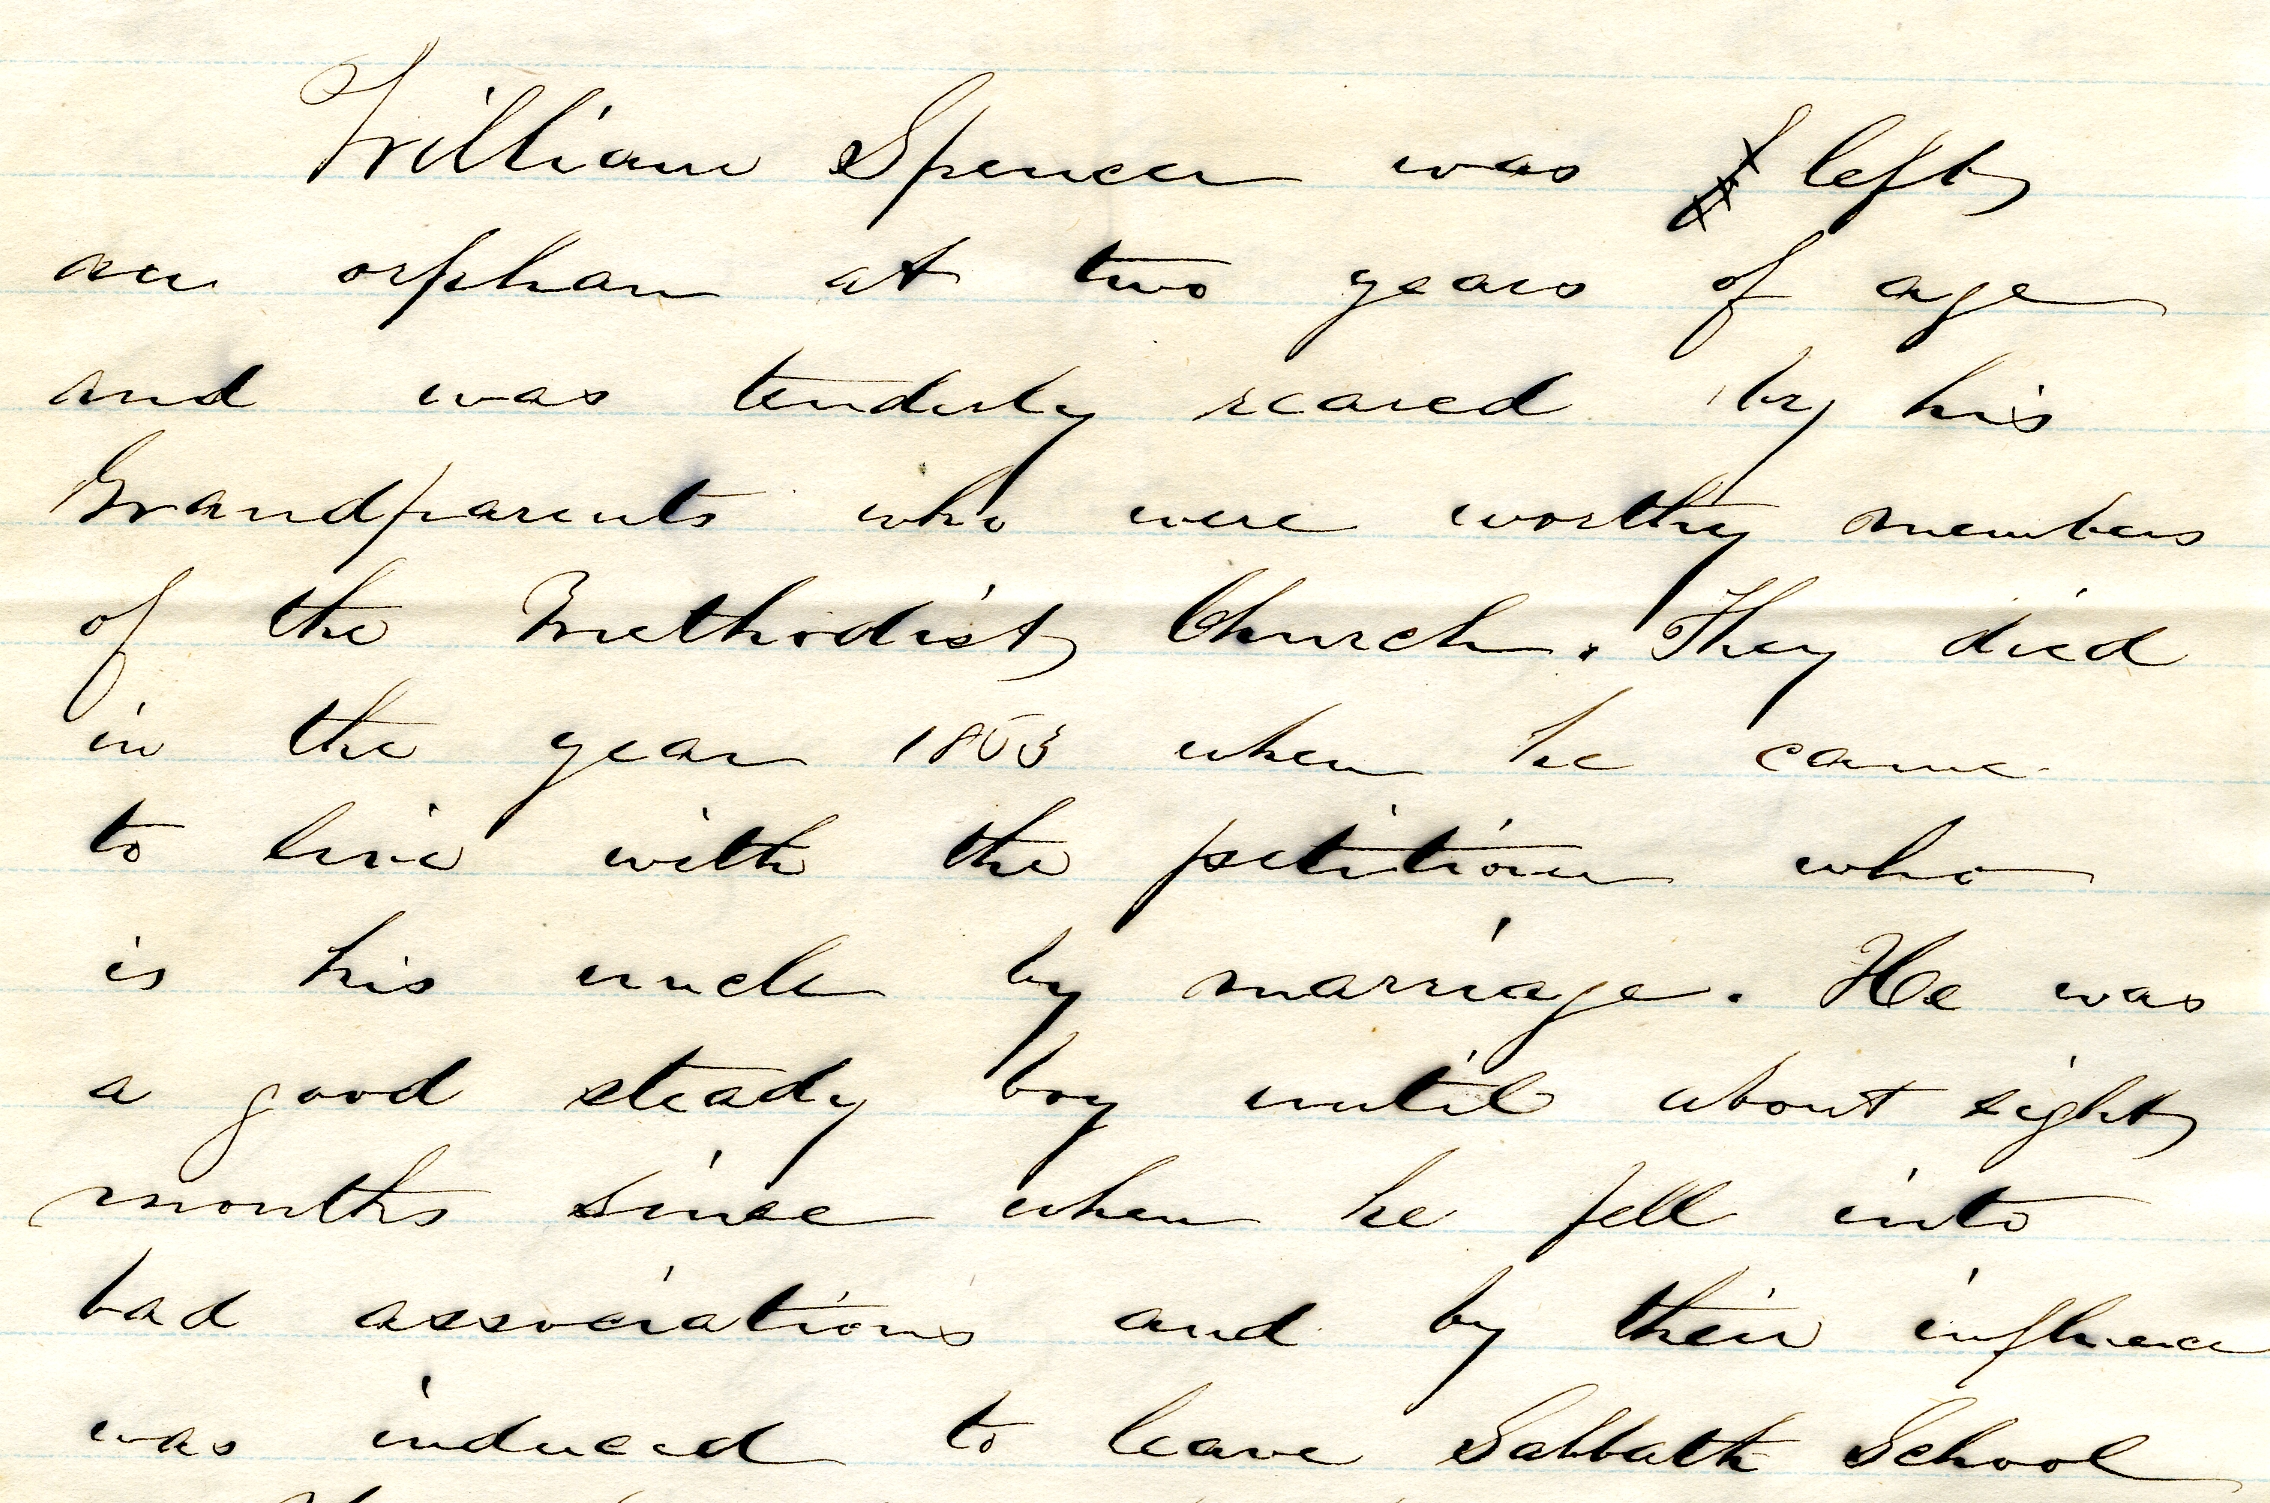 William Spencer was left
an orphan at two years of age
and was tenderly reared by his
Grandparents who were worthy members
of the Methodist Church. They died
in the year 1853 when he came
to live with the petitioner who
is his uncle by marriage. He was
a good steady boy until about eight
months since when he fell into
bad associations and by their influence
was induced to leave Sabbath School